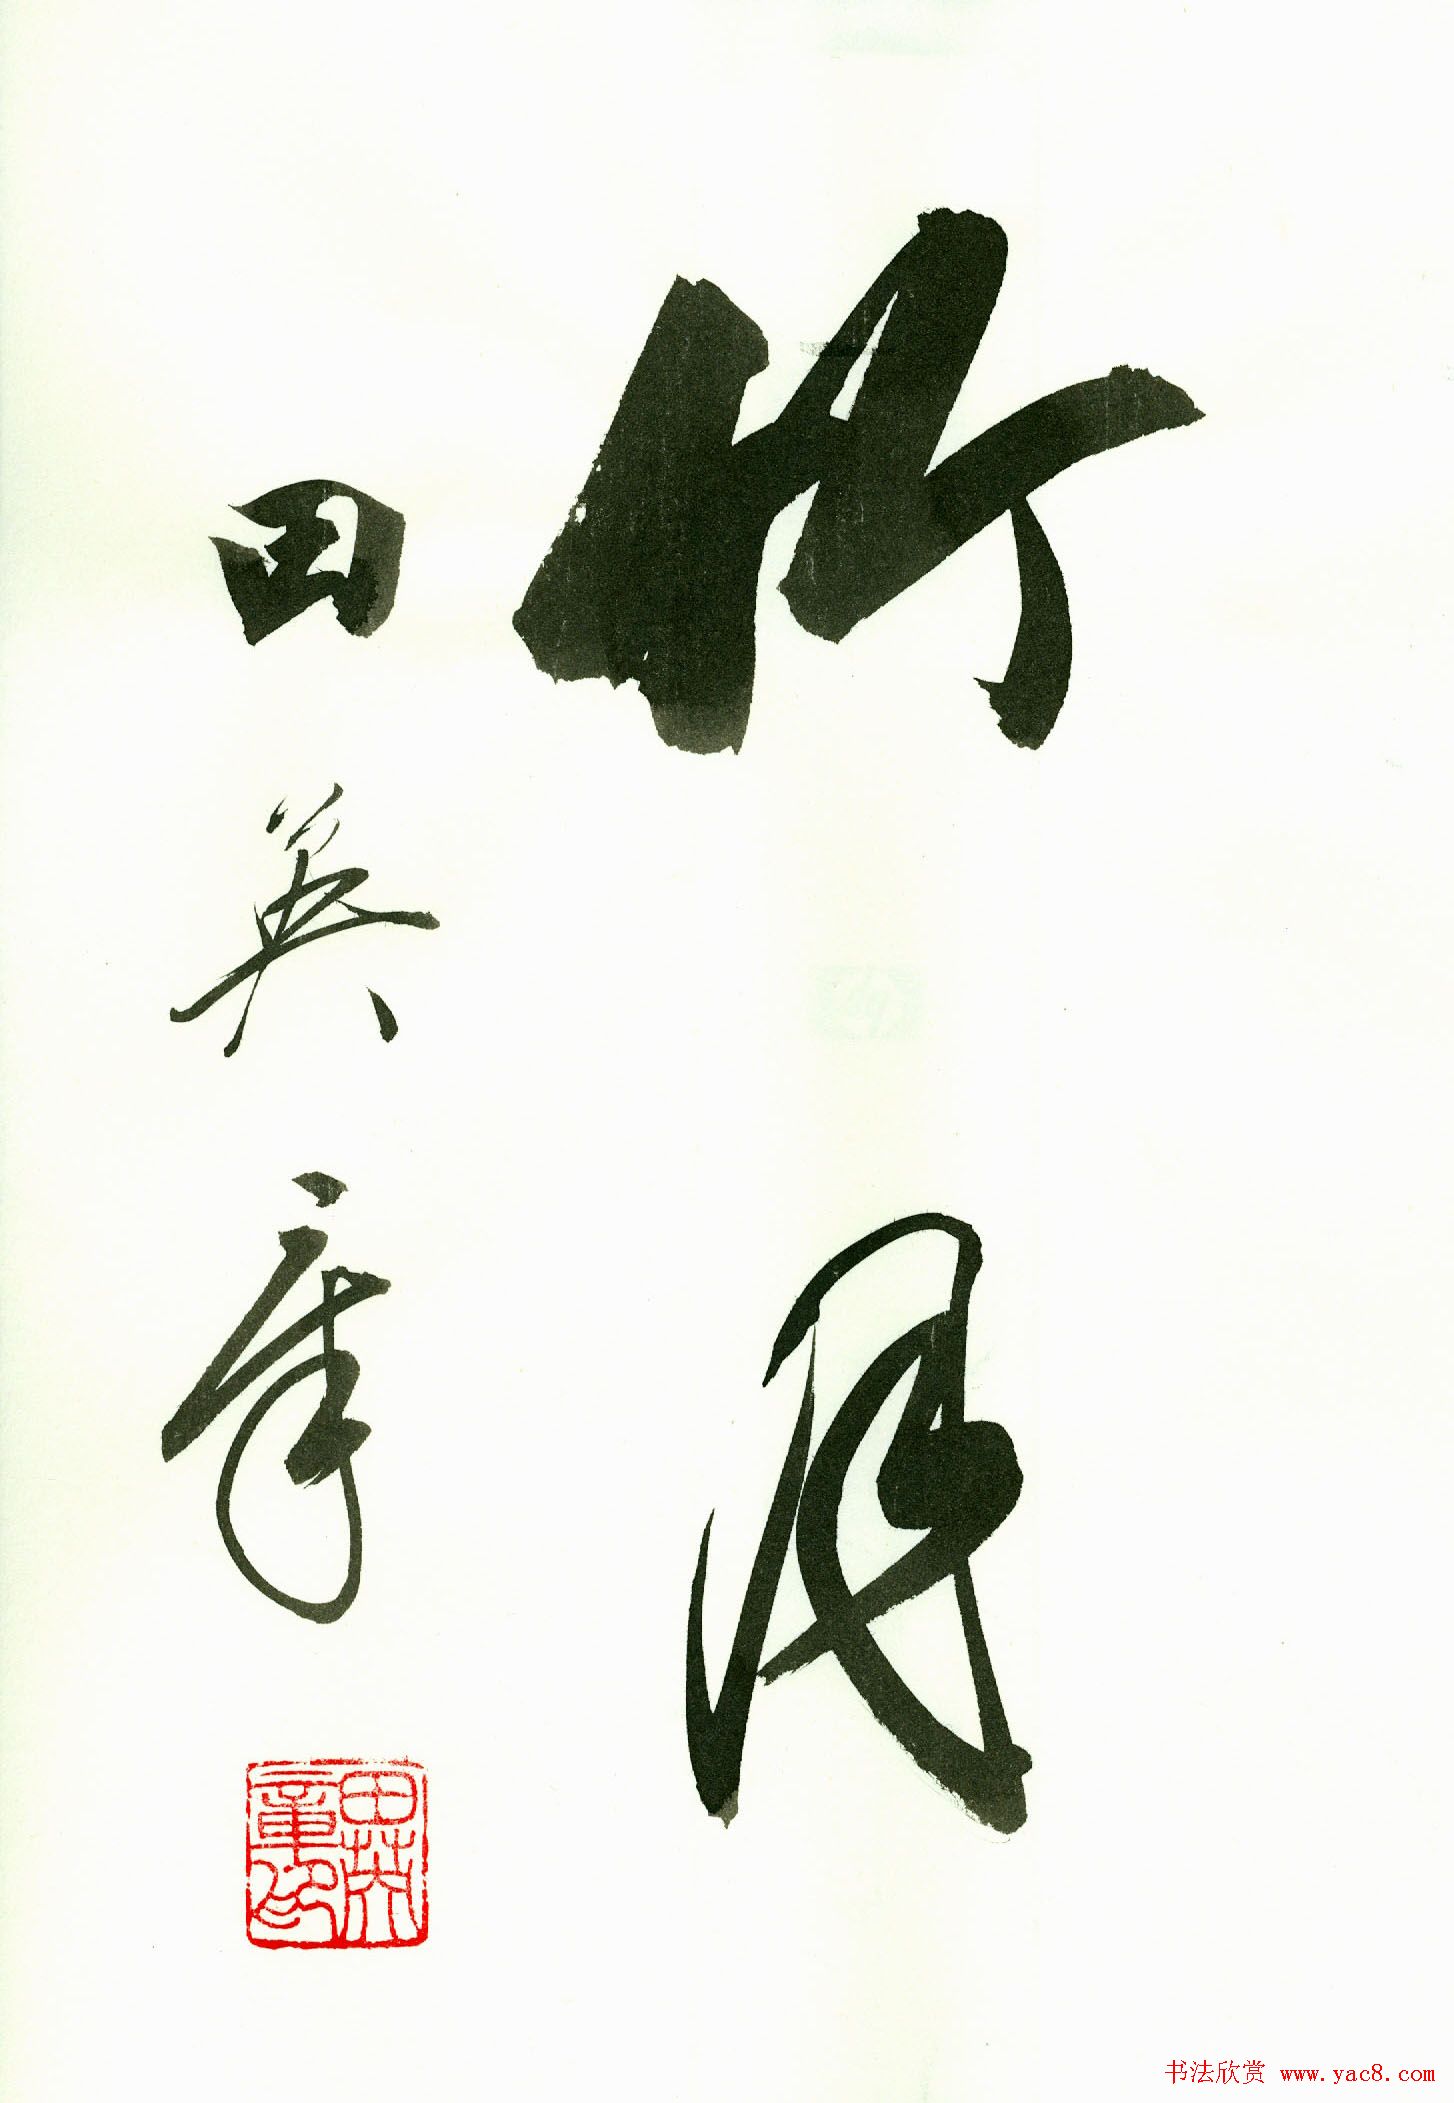 竹
田英章
田英章印
书法欣赏 www.yac8.com